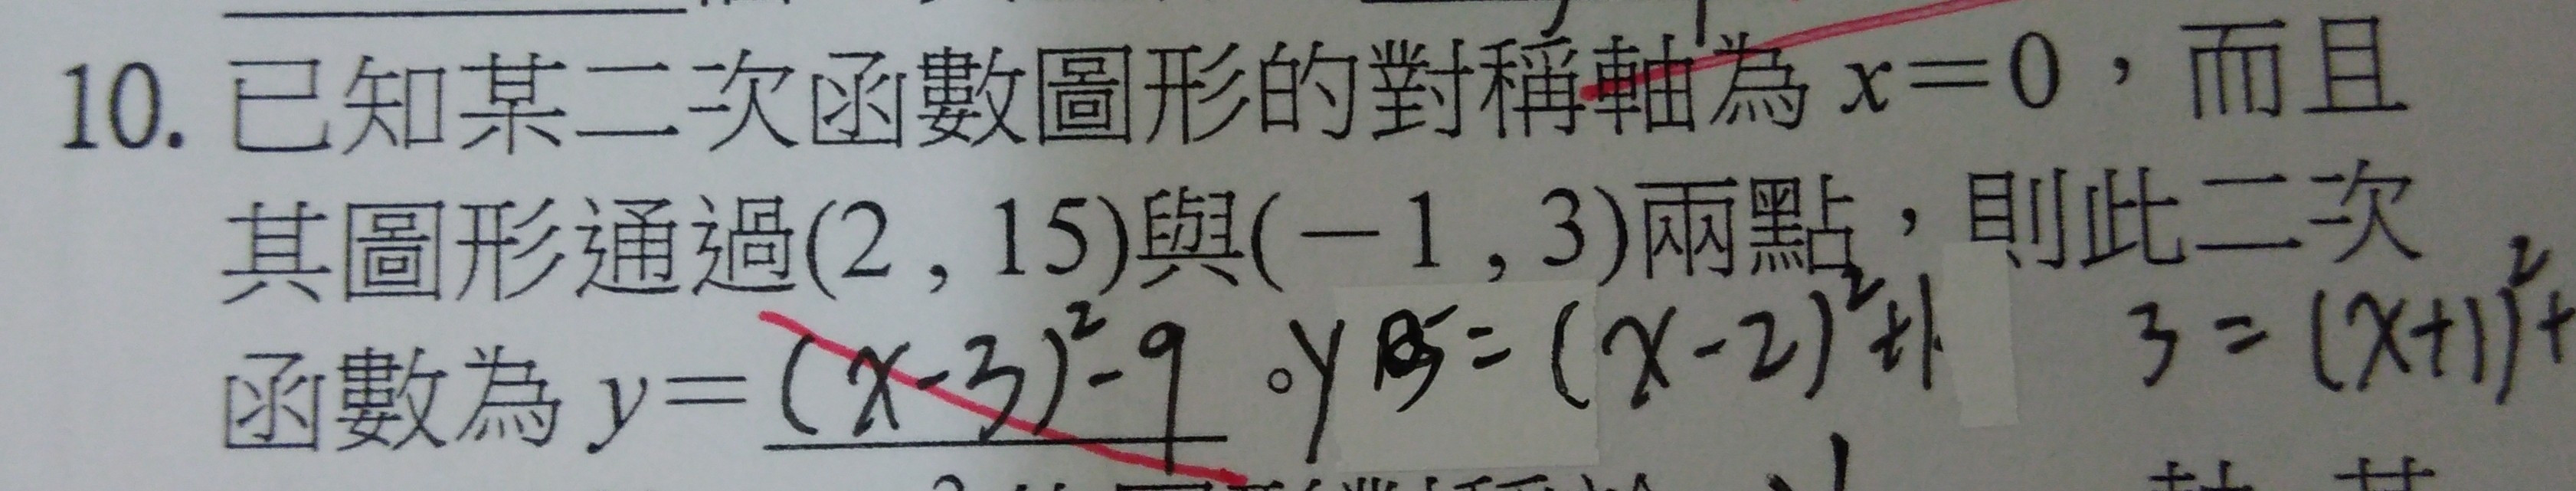 10. 已知某二次函數圖形的對稱軸為 x=0，而且
其圖形通過(2 , 15)與(－1 , 3)兩點，則此二次
函數為 y= (x-3)²-9 。y = (x-2)²+1 3 = (x+1)²+